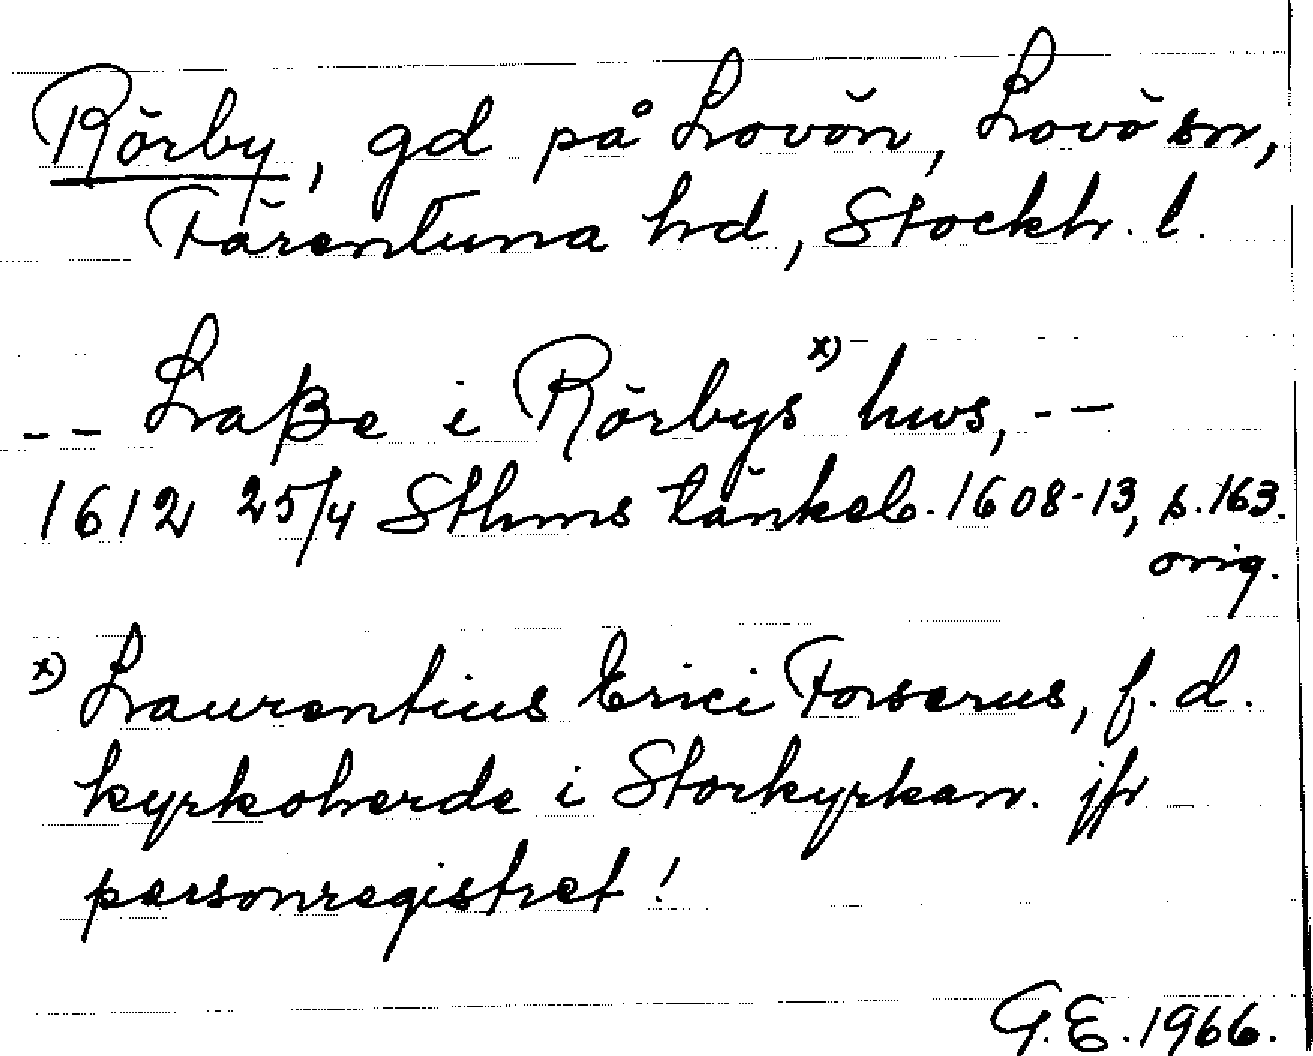 Rörby, gd på Lovön, Lovö sn,
Färentuna hd, Stockh. l.
-- Laße i Rörbys x) hws, --
1612 25/4 Sthms tänkeb. 1608-13, s. 163.
orig.
x) Laurentius Erici Forserus, f. d.
kyrkoherde i Storkyrkan. jfr
personregistret!
G.E. 1966.